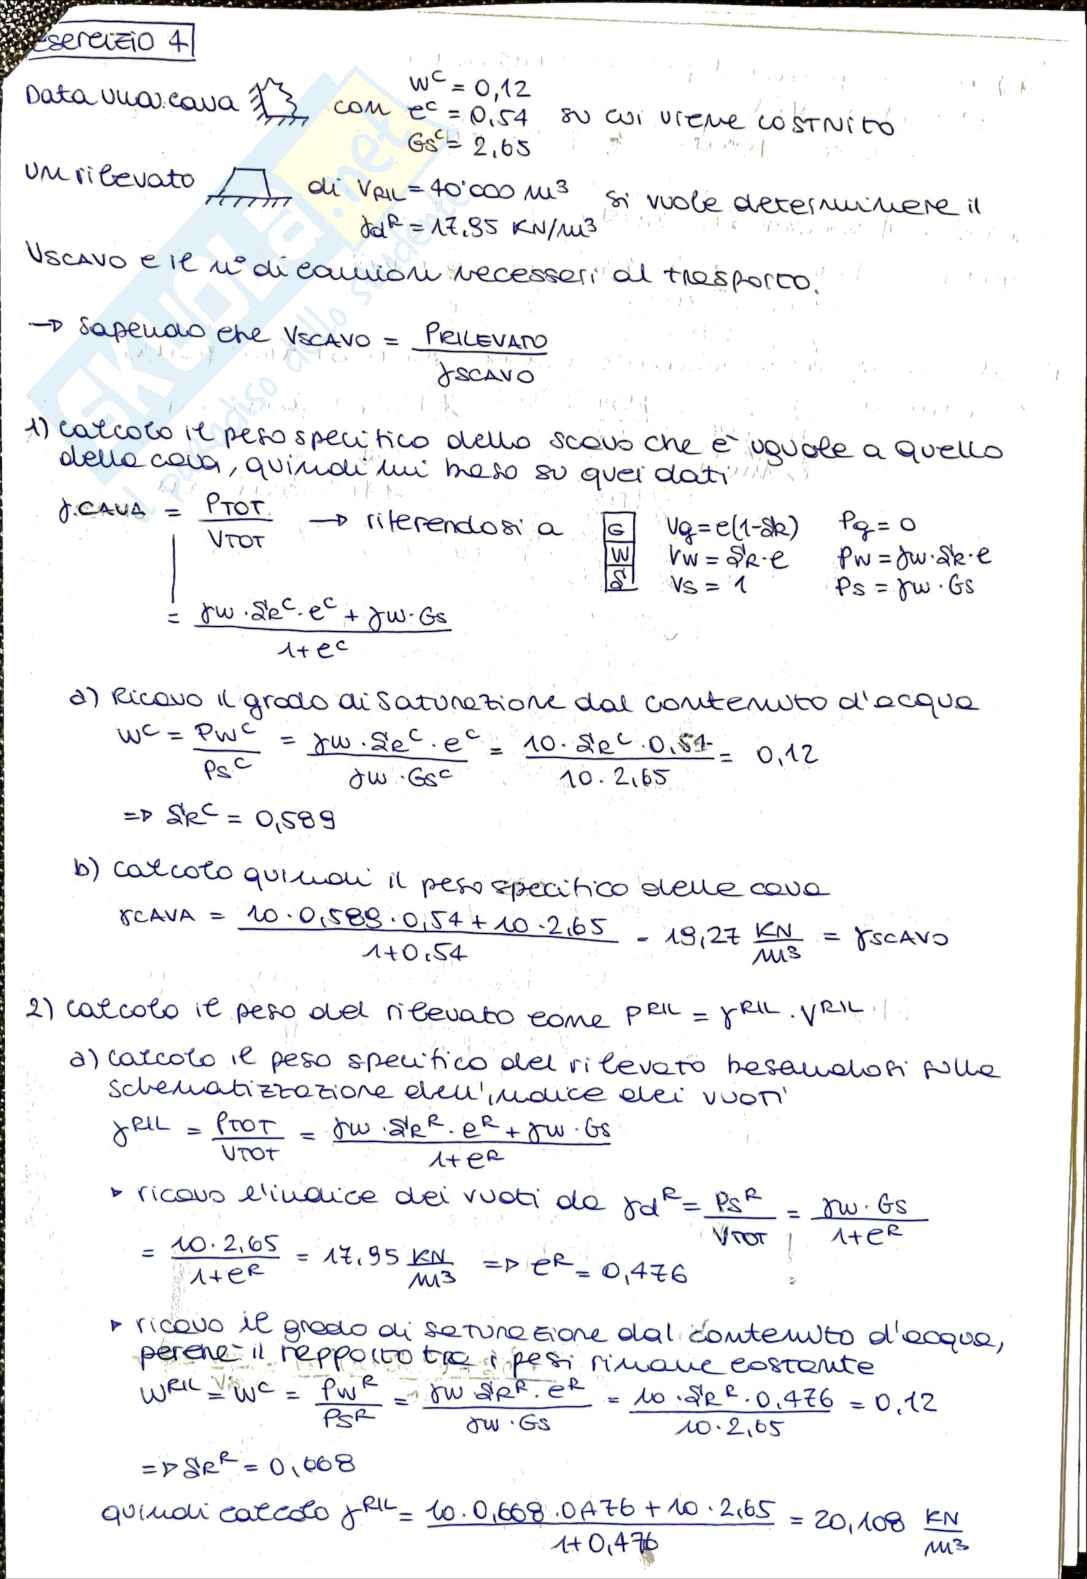 Esercizio 4
Data una cava con
w^c = 0,12
e^c = 0,54
Gs^c = 2,65
su cui viene costruito
un rilevato di V_RIL = 40'000 m³
γd^R = 17,95 KN/m³
si vuole determinare il
VSCAVO e il n° di camion necessari al trasporto.
→ sapendo che VSCAVO = PRILEVATO / γSCAVO
1) calcolo il peso specifico dello scavo che è uguale a quello
della cava, quindi mi baso su quei dati
γCAVA = PTOT / VTOT → riferendosi a
G Vg = e(1-SR) Pg = 0
W Vw = SR·e Pw = γw·SR·e
S Vs = 1 Ps = γw·Gs
= (γw·SR^c·e^c + γw·Gs) / (1+e^c)
a) Ricavo il grado di saturazione dal contenuto d'acqua
w^c = Pw^c / Ps^c = (γw·SR^c·e^c) / (γw·Gs^c) = (10·SR^c·0,54) / (10·2,65) = 0,12
=> SR^c = 0,589
b) calcolo quindi il peso specifico della cava
γCAVA = (10·0,589·0,54+10·2,65) / (1+0,54) = 19,27 KN/m³ = γSCAVO
2) calcolo il peso del rilevato come P^RIL = γ^RIL · V^RIL
a) calcolo il peso specifico del rilevato basandosi sulla
schematizzazione dell'indice dei vuoti
γ^RIL = PTOT / VTOT = (γw·SR^R·e^R + γw·Gs) / (1+e^R)
▸ ricavo l'indice dei vuoti da γd^R = Ps^R / VTOT = (γw·Gs) / (1+e^R)
= (10·2,65) / (1+e^R) = 17,95 KN/m³ => e^R = 0,476
▸ ricavo il grado di saturazione dal contenuto d'acqua,
perché il rapporto tra i pesi rimane costante
w^RIL = w^c = Pw^R / Ps^R = (γw SR^R·e^R) / (γw·Gs) = (10·SR^R·0,476) / (10·2,65) = 0,12
=> SR^R = 0,668
quindi calcolo γ^RIL = (10·0,668·0,476+10·2,65) / (1+0,476) = 20,108 KN/m³
SKUOLA.net
il paradiso dello studente